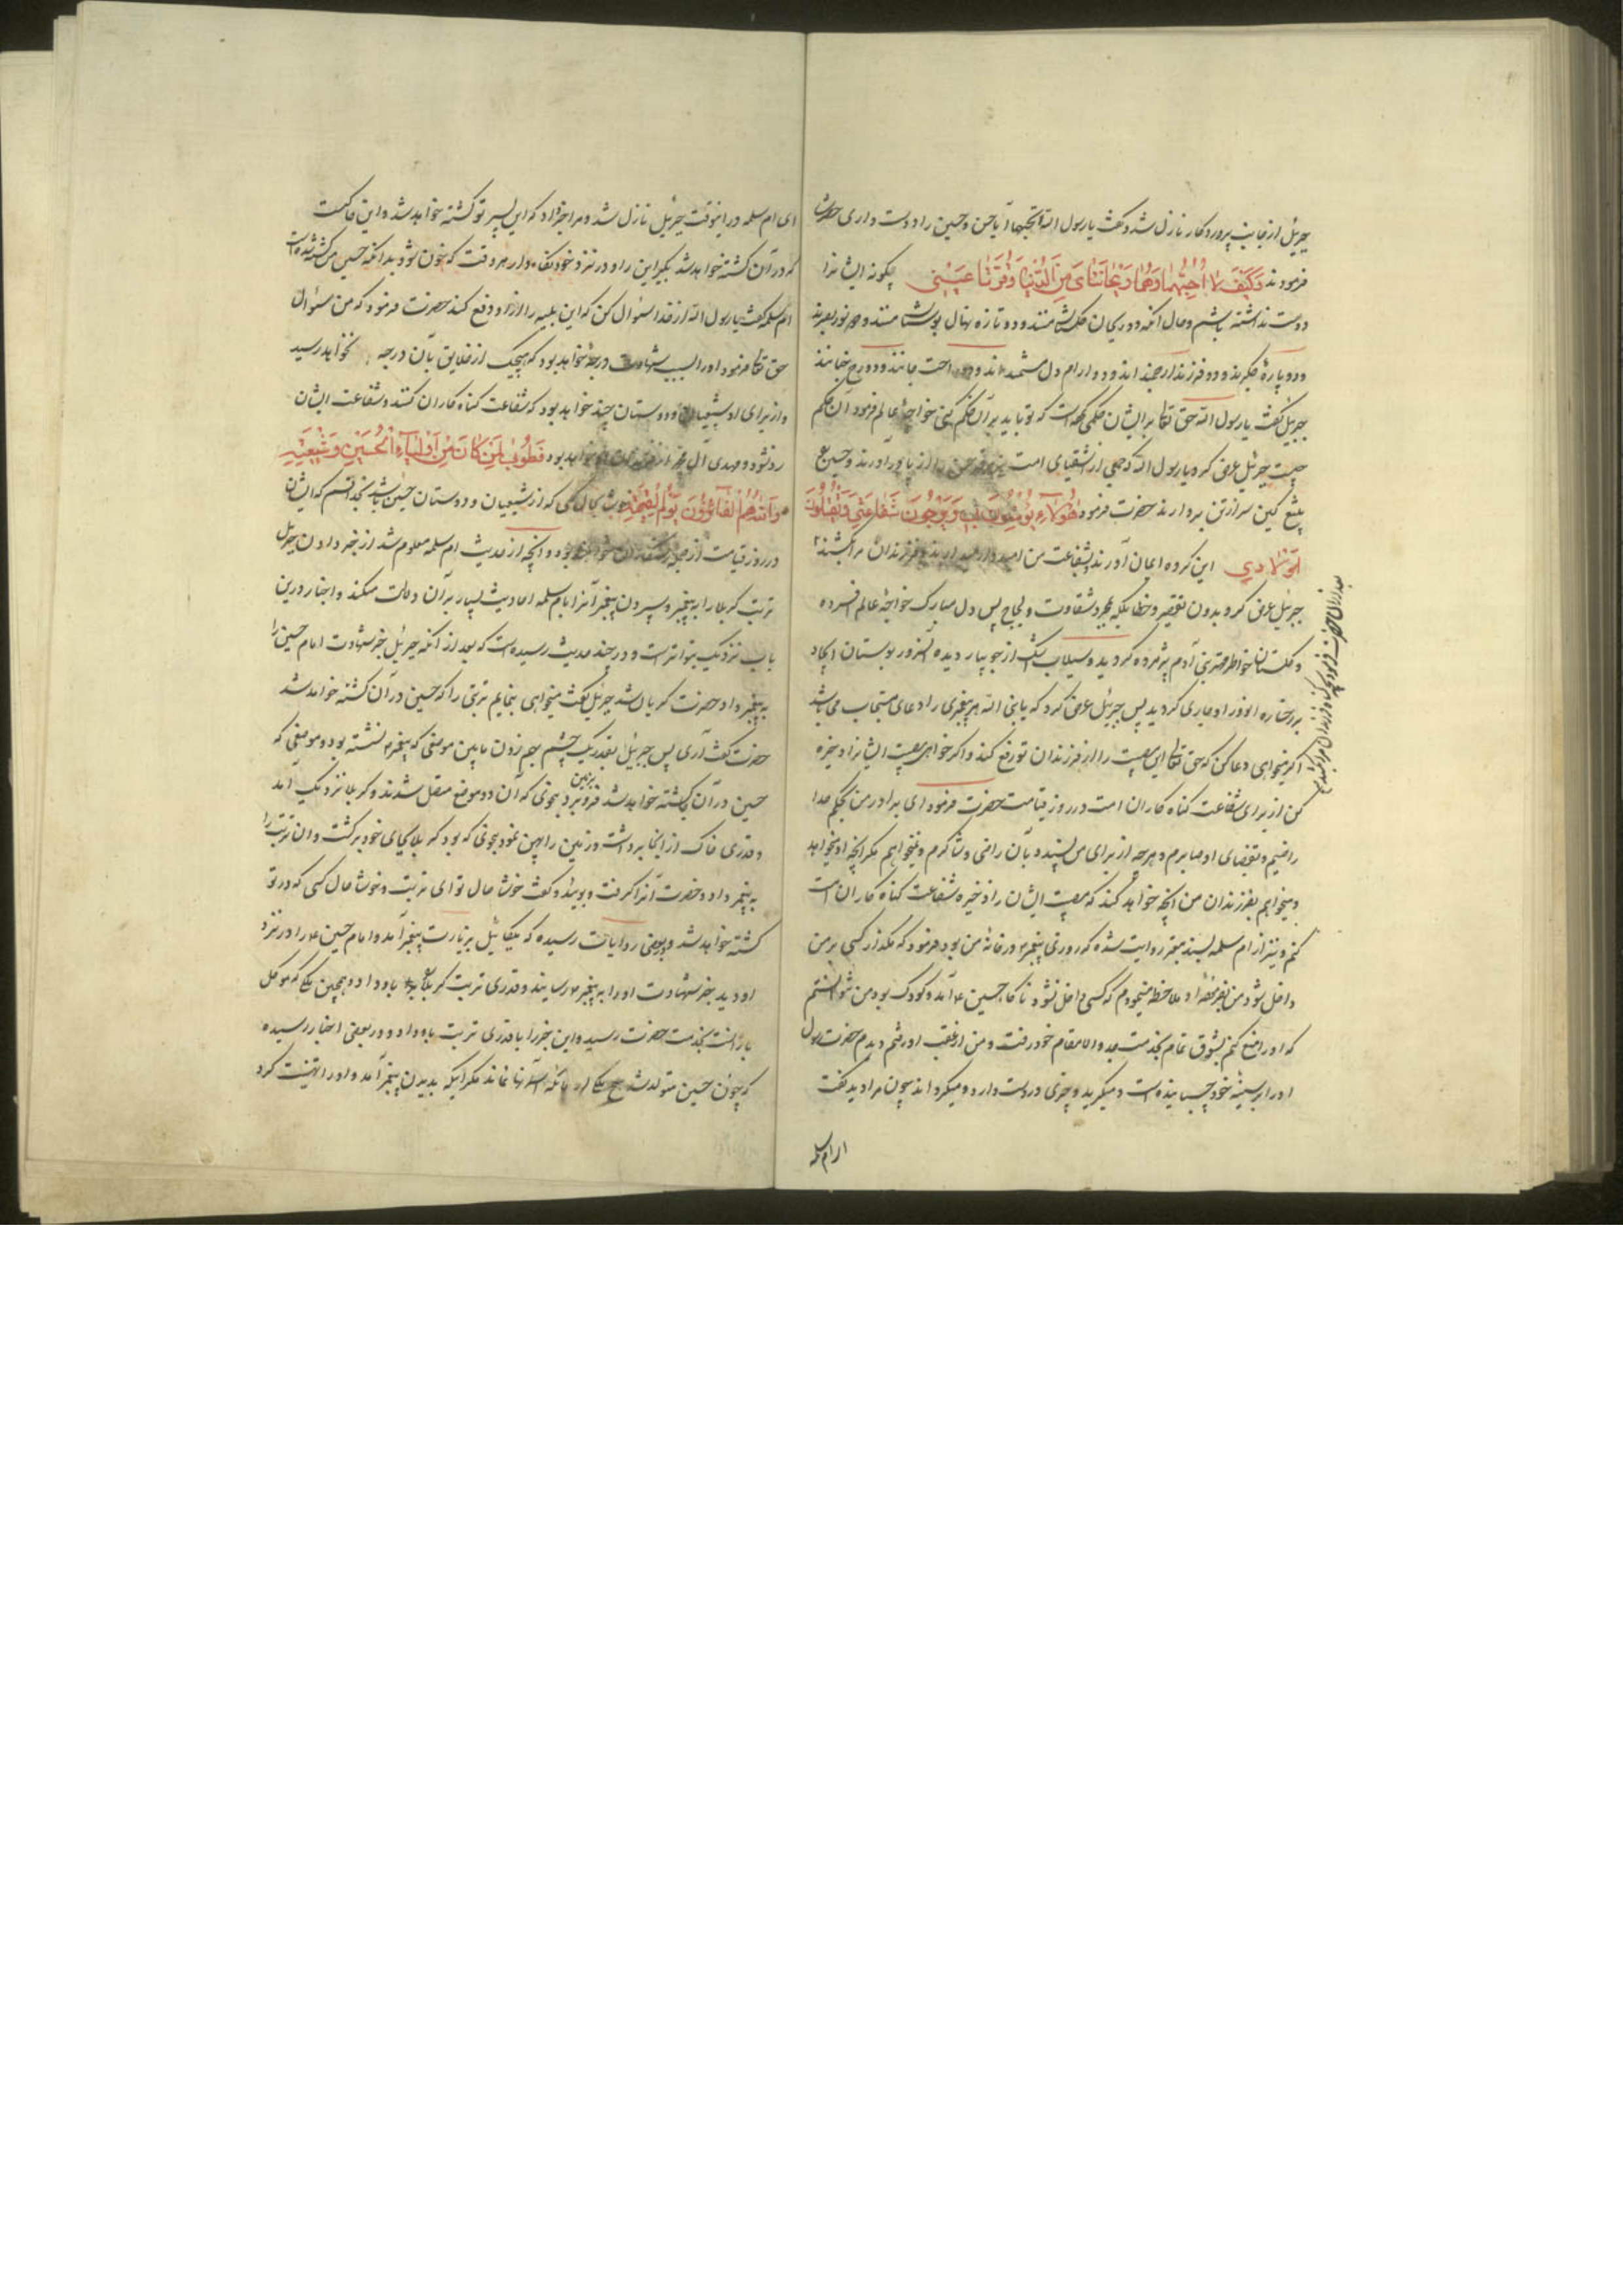 جبرئیل از جانب پروردکار نازل شد و کفت یا رسول الله اتحبهما آیا حسن و حسین را دوست داری حضرت
فرمودند وَکَیْفَ لا اُحِبُّهُما وَهُما رَیْحانَتایَ مِنَ الدُّنْیا وَقُرَّتا عَیْنِی چکونه ایشانرا
دوست نداشته باشم و حال آنکه دو ریحان کلشن منند و دو تازه نهال بوستان منند و دو نور بصرند
و دو پارهٔ جکرند و دو فرزند ارجمند اند و دو ارام دل مستمند اند و دو راحت جانند و دو
جبرئیل کفت یا رسول الله حق تعالی بر ایشان حکمی کرده است که تو باید بر آن حکم کنی خواجهٔ عالم فرمود آن حکم
چیست جبرئیل عرض کرد یا رسول الله که جمعی از اشقیای امت حسن را از پا در آورند و حسین ع
بتیغ کین سر از تن بردارند حضرت فرمود هٰؤُلاءِ یُؤْمِنُونَ بِی وَیَرْجُونَ شَفاعَتِی وَیَقْتُلُونَ
اَوْلادِی این کروه ایمان آورند بشفاعت من امید دارند و فرزندان مرا بکشند
جبرئیل عرض کرد بدون تقصیر و خطا بلکه بمجرد شقاوت و لجاج پس دل مبارک خواجهٔ عالم افسرده
و کلستان خواطر مهتر بنی آدم پژمرده کردید و سیلاب اشک از جویبار دیده آنسرور بوستان ایجاد
بر رخساره انور او جاری کردید پس جبرئیل عرض کرد که یا نبی الله هر پیغمبری را دعای مستجاب می باشد
اکر میخواهی دعا کن که حق تعالی این مصیبت را از فرزندان تو رفع کند و اکر خواهی مصیبت ایشانرا ذخیره
کن از برای شفاعت کناه کاران امت در روز قیامت حضرت فرمود ای برادر من بحکم خدا
راضیم و بقضای او صابرم و هرچه از برای من پسندد بآن راضی و شاکرم و نمیخواهم مکر آنچه او میخواهد
و میخواهم بفرزندان من آنچه خواهد کند که مصیبت ایشان را ذخیره شفاعت کناه کاران امت
کنم و نیز از ام سلمه بسند معتبر روایت شده که روزی پیغمبر در خانهٔ من بود فرمود که مکذار کسی بر من
داخل شود من ملاحظه مینمودم که کسی داخل نشود ناکاه حسین ع آمد و کودک بود من نتوانستم
که او را منع کنم بشوق تمام بخدمت جد والا مقام خود رفت و من از عقب او رفتم دیدم حضرت رسول
او را بر سینهٔ خود چسبانیده است و میکرید و چیزی در دست دارد و میکرداند چون مرا دید کفت
ای ام سلمه
ای ام سلمه در اینوقت جبرئیل نازل شد و مرا خبر داد که این پسر تو کشته خواهد شد و این خاکیست
که در آن کشته خواهد شد بکیر این را و در نزد خود نکاه دار هر وقت که خون شود بدانکه حسین من کشته شده است
ام سلمه کفت یا رسول الله از خدا سئوال کن که این بلیه را از او دفع کند حضرت فرمود که من سئوال
حق تعالی فرمود او را بسبب شهادت درجهٔ خواهد بود که هیچیک از خلایق بآن درجه نخواهد رسید
و از برای او شیعیان و دوستان چند خواهد بود که شفاعت کناه کاران کنند و شفاعت ایشان
رد نشود و مهدی آل محمد از فرزندان او خواهد بود فَطُوبیٰ لِمَنْ کانَ مِنْ اَوْلِیاءِ الْحُسَیْنِ وَشِیعَتِهِ
وَاللهِ هُمُ الْفائِزُونَ یَوْمَ الْقِیٰمَةِ خوشا بحال کسی که از شیعیان و دوستان حسین باشد بخدا قسم که ایشان
در روز قیامت از جمله رستکاران خواهند بود و آنچه از حدیث ام سلمه معلوم شد از خبر دادن جبرئیل
تربت کربلا را به پیغمبر و سپردن پیغمبر آنرا بام سلمه احادیث بسیار بر آن دلالت میکند و اخبار در این
باب نزدیک بتواتر است و در چند حدیث رسیده است که بعد از آنکه جبرئیل خبر شهادت امام حسین را
به پیغمبر داد حضرت کریان شد جبرئیل کفت میخواهی بنمایم تربتی را که حسین در آن کشته خواهد شد
حضرت کفت آری پس جبرئیل بقدر یک چشم بهم زدن مابین موضعی که پیغمبر نشسته بود و موضعی که
حسین در آن کشته خواهد شد فرو برد بزمین بنحوی که آن دو موضع متصل شدند و کربلا نزدیک آمد
و قدری خاک از آنجا برداشت و زمین را پهن نمود بنحوی که بود کربلا بجای خود برکشت و آن تربت را
به پیغمبر داد و حضرت آنرا کرفت و بوئید و کفت خوشا حال تو ای تربت و خوشا حال کسی که در تو
کشته خواهد شد و در بعضی روایات رسیده که میکائیل بزیارت پیغمبر آمد و امام حسین ع را در نزد
او دید خبر شهادت او را به پیغمبر رسانید و قدری تربت کربلا باو داد و همچنین ملک موکل
باران بخدمت حضرت رسید و این خبر را با قدری تربت باو داد و در بعضی اخبار رسیده
که چون حسین متولد شد هیچ ملکی از ملائکه آسمانها نماند مکر اینکه بدیدن پیغمبر آمد و او را تهنیت کرد